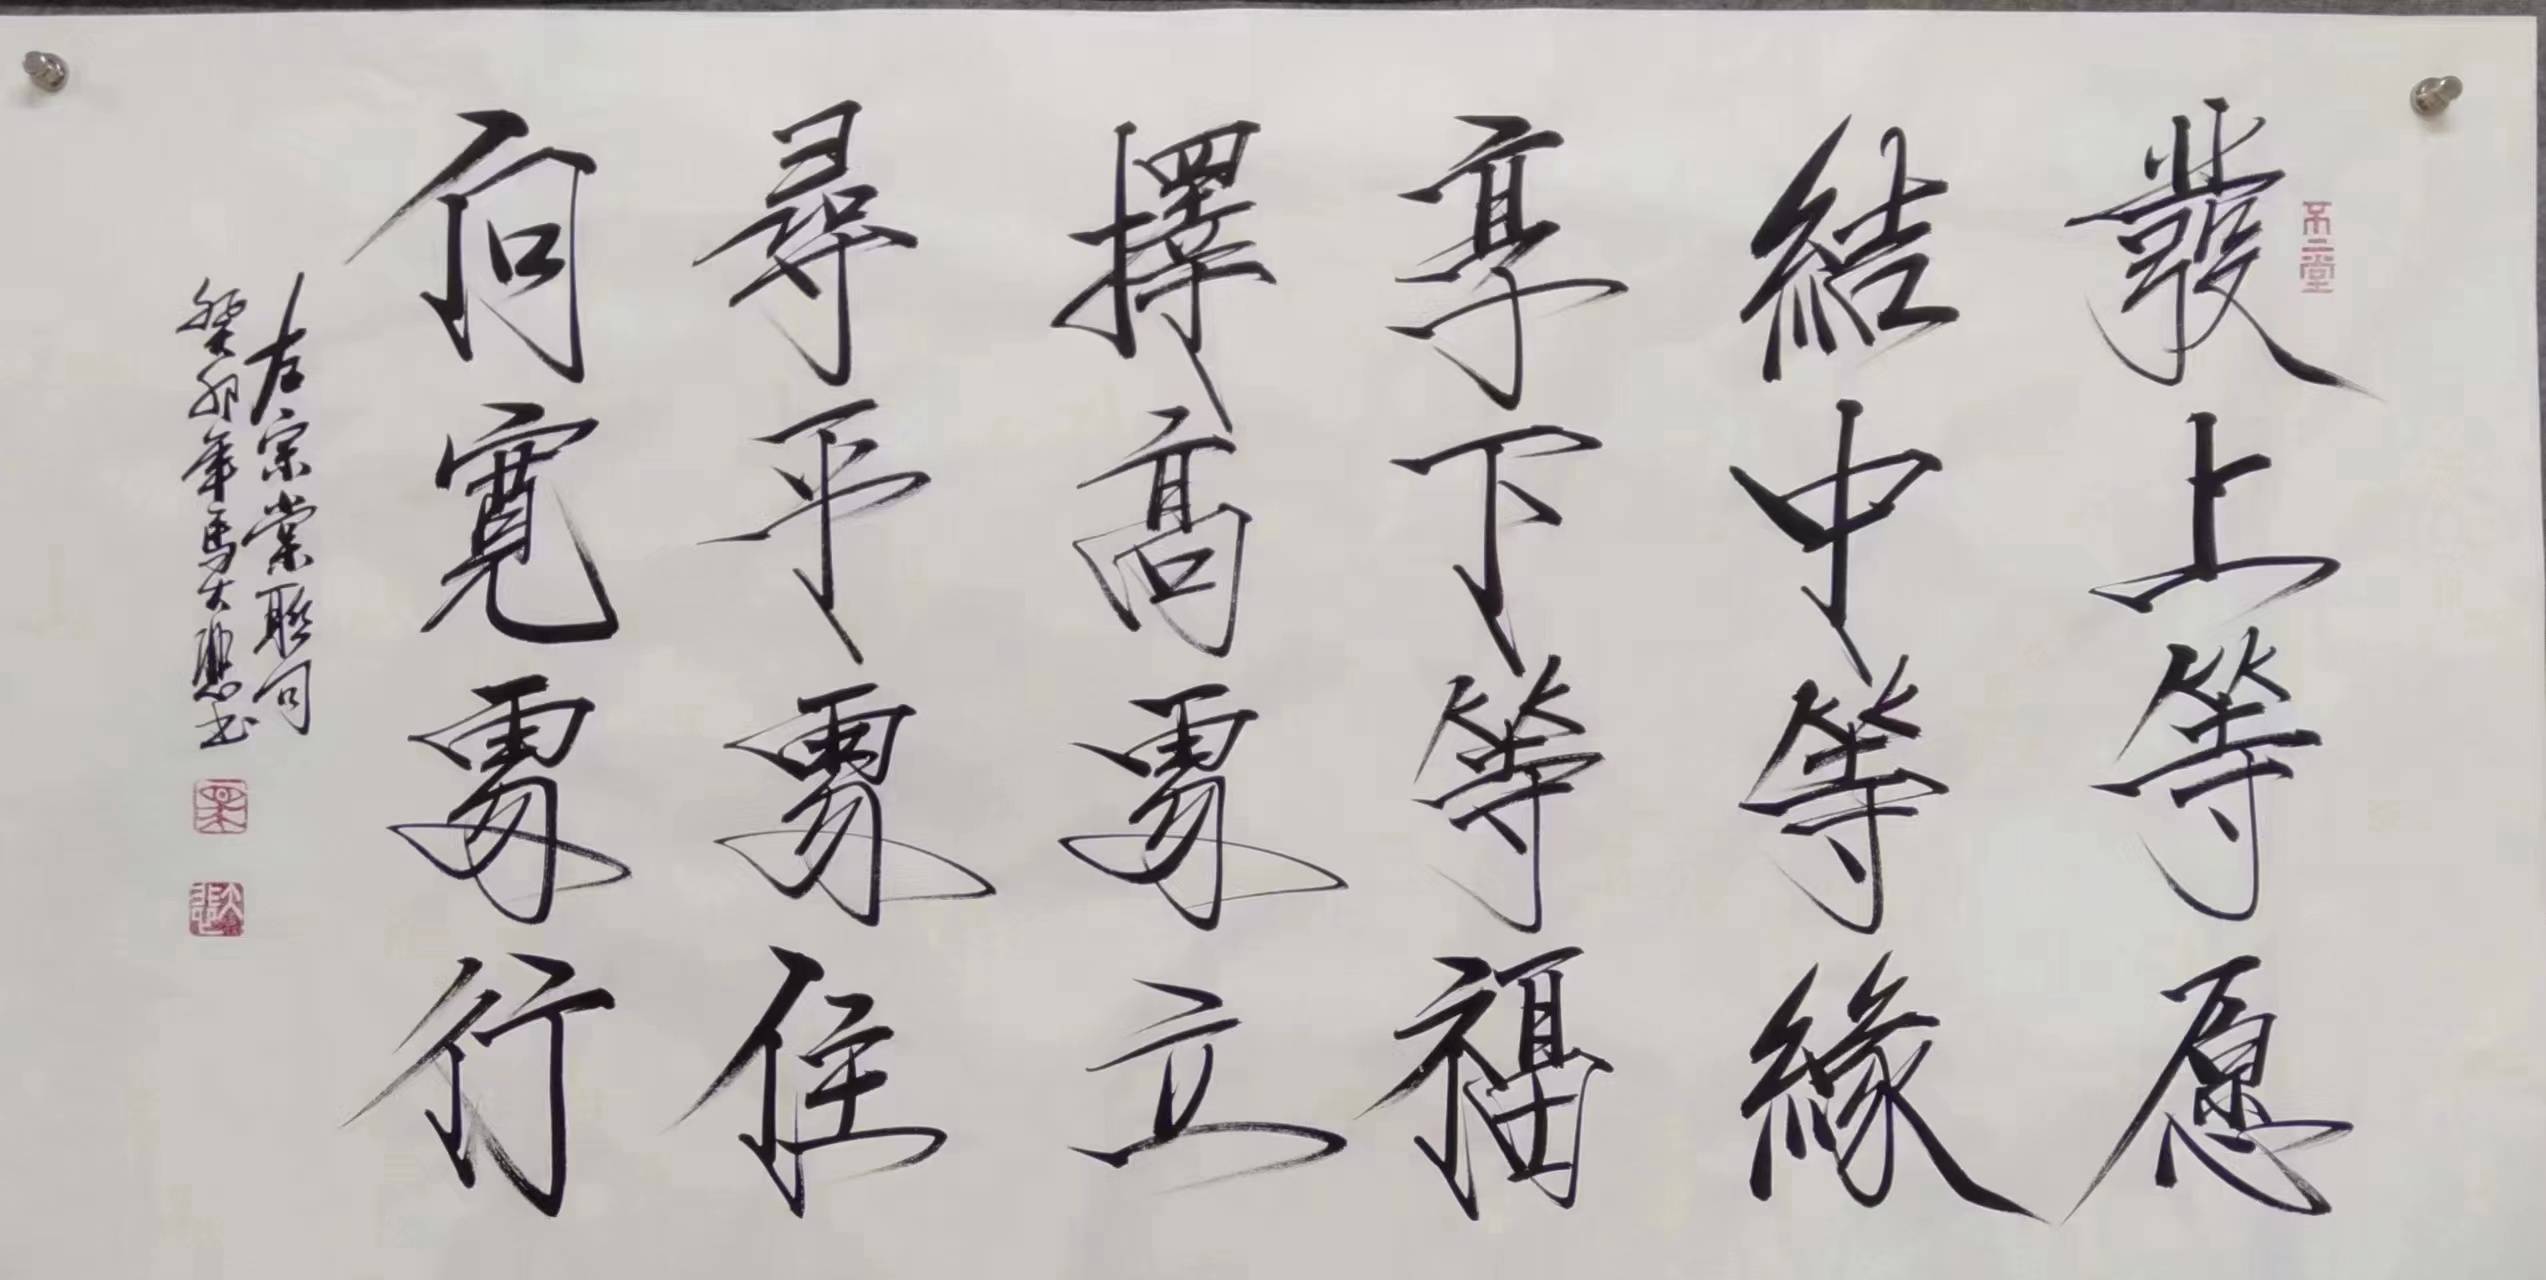 不二堂
發上等愿
結中等緣
享下等福
擇高處立
尋平處住
向寬處行
左宗棠聯句
癸卯年馬大聰书